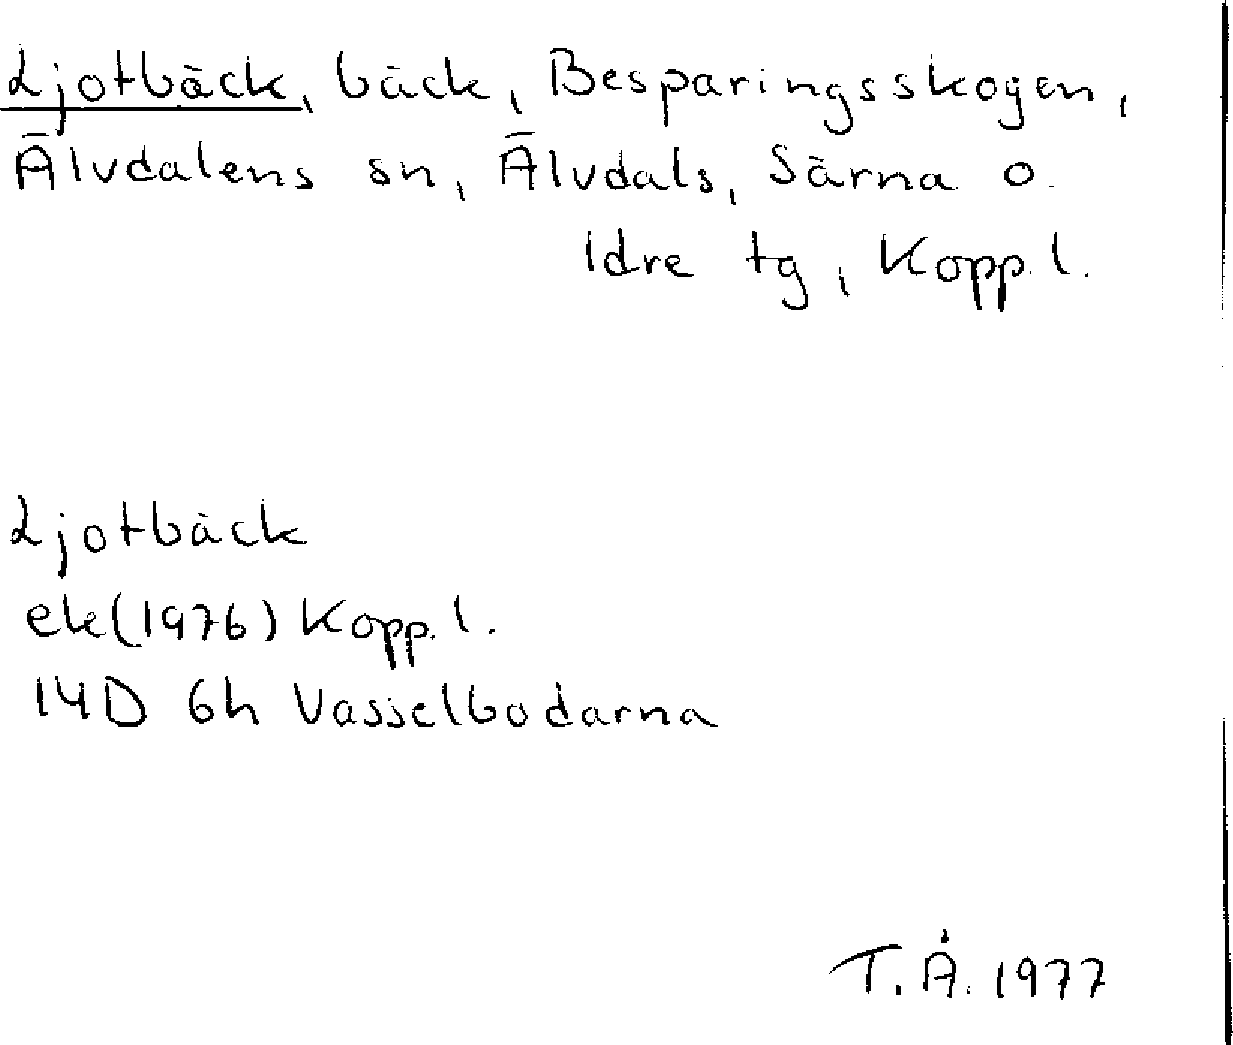 Ljotbäck, bäck, Besparingsskogen,
Älvdalens sn, Älvdals, Särna o.
Idre tg, Kopp. l.
Ljotbäck
ek (1976) Kopp. l.
14D 6h Vasselbodarna
T. Å. 1977